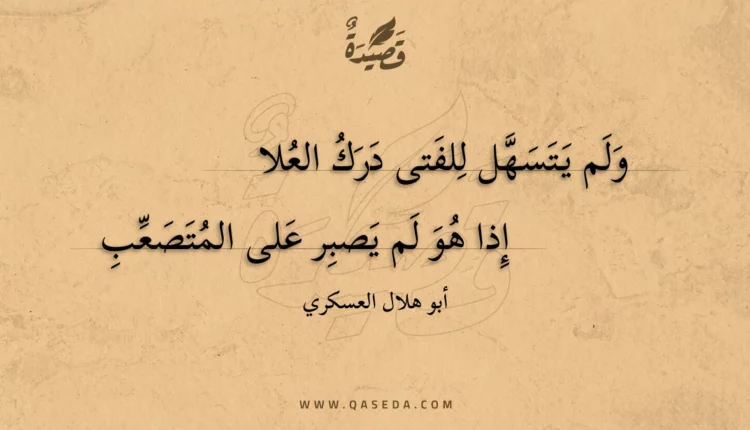 قَصِيدَةٌ
وَلَم يَتَسَهَّل لِلفَتى دَرَكُ العُلا
إِذا هُوَ لَم يَصبِر عَلى المُتَصَعِّبِ
أبو هلال العسكري
WWW.QASEDA.COM